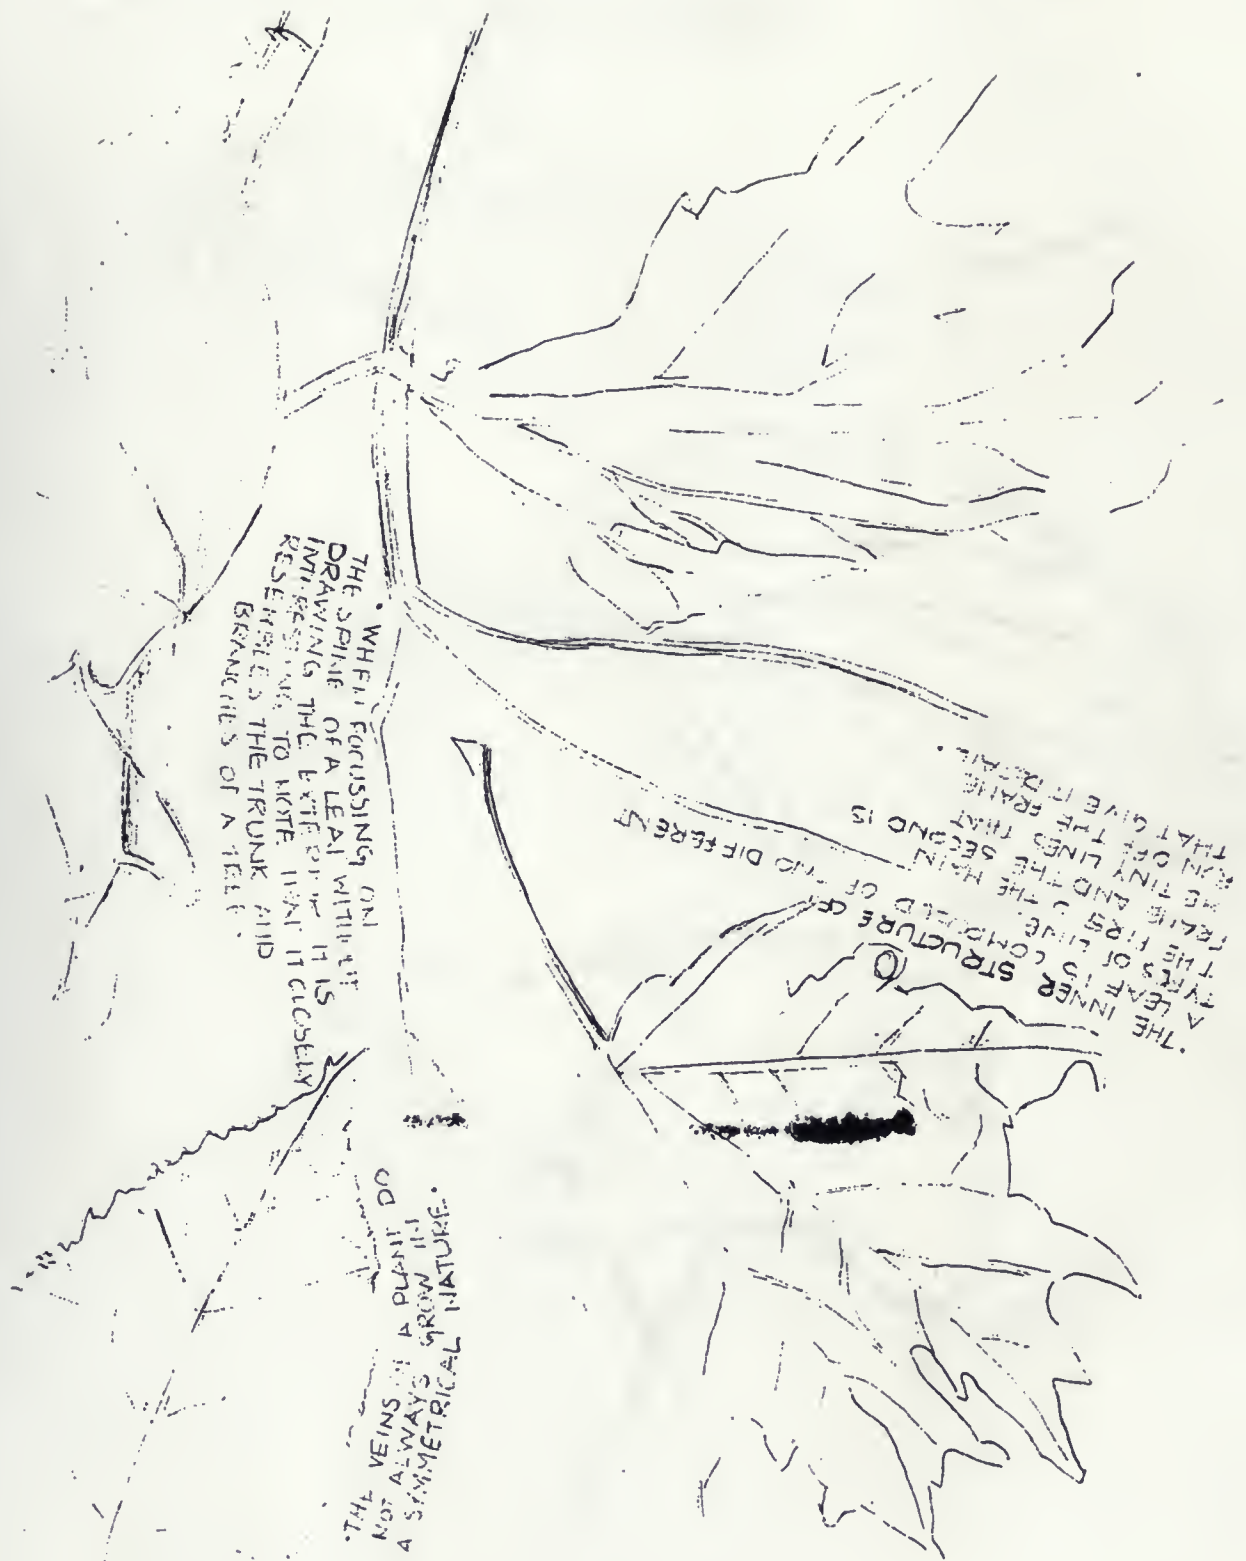 • WHEN FOCUSSING ON
THE SPINE OF A LEAF WITHOUT
DRAWING THE EXTERIOR IT IS
INTERESTING TO NOTE THAT IT CLOSELY
RESEMBLES THE TRUNK AND
BRANCHES OF A TREE.
• THE INNER STRUCTURE OF
A LEAF IS COMPOSED OF TWO DIFFERENT
TYPES OF LINE.
THE FIRST IS THE MAIN
FRAME AND THE SECOND IS
THE TINY LINES THAT
RUN OFF THE FRAME
THAT GIVE IT DETAIL.
• THE VEINS IN A PLANT DO
NOT ALWAYS GROW IN
A SYMMETRICAL NATURE.